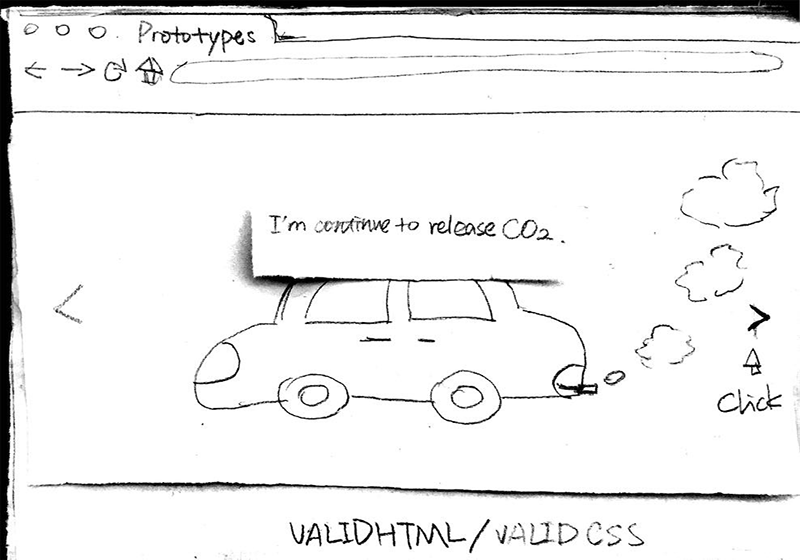 Prototypes
I'm continue to release CO2.
Click
VALIDHTML/VALIDCSS